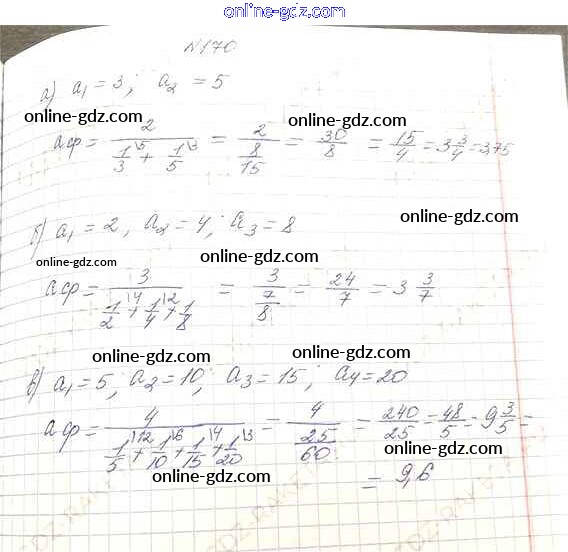 online-gdz.com
№170
а) a₁ = 3; a₂ = 5
online-gdz.com
online-gdz.com
aф = 2/(1/3\5 + 1/5\3) = 2/(8/15) = 30/8 = 15/4 = 3 3/4 = 3,75
online-gdz.com
б) a₁ = 2, a₂ = 4; a₃ = 8
online-gdz.com
online-gdz.com
online-gdz.com
aф = 3/(1/2\4 + 1/4\2 + 1/8) = 3/(7/8) = 24/7 = 3 3/7
online-gdz.com
online-gdz.com
в) a₁ = 5; a₂ = 10; a₃ = 15; a4 = 20
aф = 4/(1/5\12 + 1/10\6 + 1/15\4 + 1/20\3) = 4/(25/60) = 240/25 = 48/5 = 9 3/5 =
online-gdz.com
online-gdz.com
= 9,6